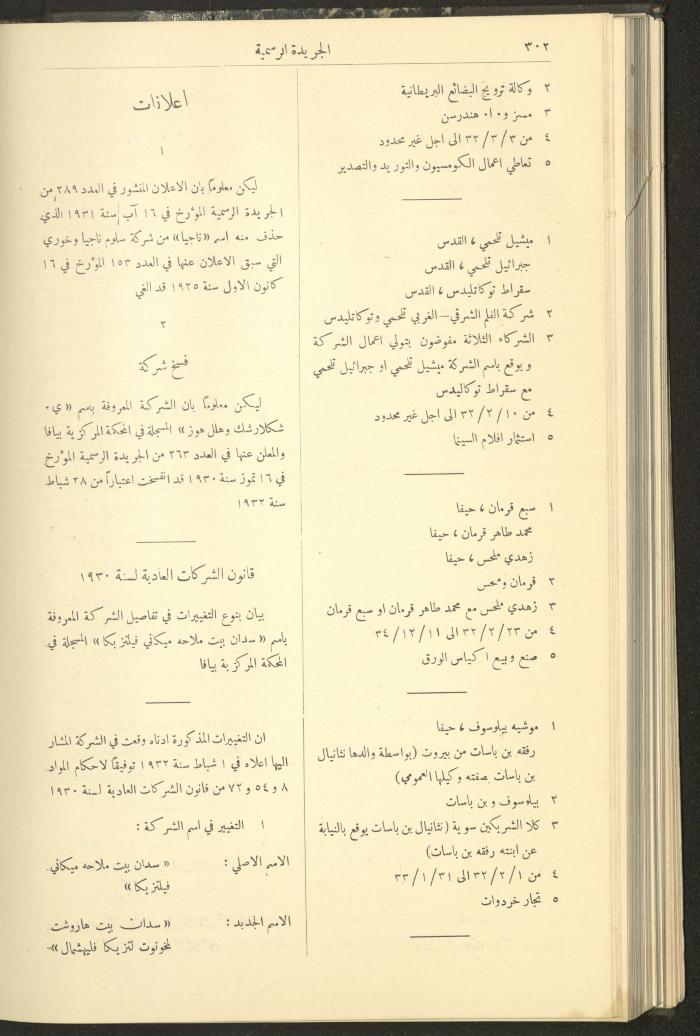 ٣٠٢
الجريدة الرسمية
٢ وكالة ترويج البضائع البريطانية
٣ مسز و٠ا٠ هندرسن
٤ من ٣/٣/٣٢ الى اجل غير محدود
٥ تعاطي اعمال الكومسيون والتوريد والتصدير
١ ميشيل تلحمي ، القدس
جبرائيل تلحمي ، القدس
سقراط توكاتليدس ، القدس
٢ شركة الفلم الشرقي—الغربي تلحمي وتوكاتليدس
٣ الشركاء الثلاثة مفوضون بتولي اعمال الشركة
و يوقع باسم الشركة ميشيل تلحمي او جبرائيل تلحمي
مع سقراط توكاليدس
٤ من ١٠/٢/٣٢ الى اجل غير محدود
٥ استثمار افلام السينما
١ سبع قرمان ، حيفا
محمد طاهر قرمان ، حيفا
زهدي ملحس ، حيفا
٢ قرمان وملحس
٣ زهدي ملحس مع محمد طاهر قرمان او سبع قرمان
٤ من ٢٣/٢/٣٢ الى ١١/١٢/٣٤
٥ صنع وبيع اكياس الورق
١ موشيه بيلوسوف ، حيفا
رفقه بن باسات من بيروت (بواسطة والدها نثانيال
بن باسات صفته وكيلها العمومي)
٢ بيلوسوف و بن باسات
٣ كلا الشريكين سوية (نثانيال بن باسات يوقع بالنيابة
عن ابنته رفقه بن باسات)
٤ من ١/٢/٣٢ الى ٣١/١/٣٣
٥ تجار خردوات
اعلانات
١
ليكن معلوما بان الاعلان المنشور في العدد ٢٨٩ من
الجريدة الرسمية المؤرخ في ١٦ آب سنة ١٩٣١ الذي
حذف منه اسم «ناجيا» من شركة سلوم ناجيا وخوري
التي سبق الاعلان عنها في العدد ١٥٣ المؤرخ في ١٦
كانون الاول سنة ١٩٢٥ قد الغي
٢
فسخ شركة
ليكن معلوما بان الشركة المعروفة باسم «ي٠
شكلارشك وهلل هوز» المسجلة في المحكمة المركزية بيافا
والمعلن عنها في العدد ٢٦٣ من الجريدة الرسمية المؤرخ
في ١٦ تموز سنة ١٩٣٠ قد انفسخت اعتباراً من ٢٨ شباط
سنة ١٩٣٢
قانون الشركات العادية لسنة ١٩٣٠
بيان بنوع التغييرات في تفاصيل الشركة المعروفة
باسم «سدان بيت ملاحه ميكاني فيلتزيكا» المسجلة في
المحكمة المركزية بيافا
ان التغييرات المذكورة ادناه وقعت في الشركة المشار
اليها اعلاه في ١ شباط سنة ١٩٣٢ توفيقاً لاحكام المواد
٨ و ٥٤ و ٧٢ من قانون الشركات العادية لسنة ١٩٣٠
١ التغيير في اسم الشركة :
الاسم الاصلي : «سدان بيت ملاحه ميكاني
فيلتزيكا»
الاسم الجديد : «سدان بيت هاروشت
لمخونوت لتزيكا فليهشمال»